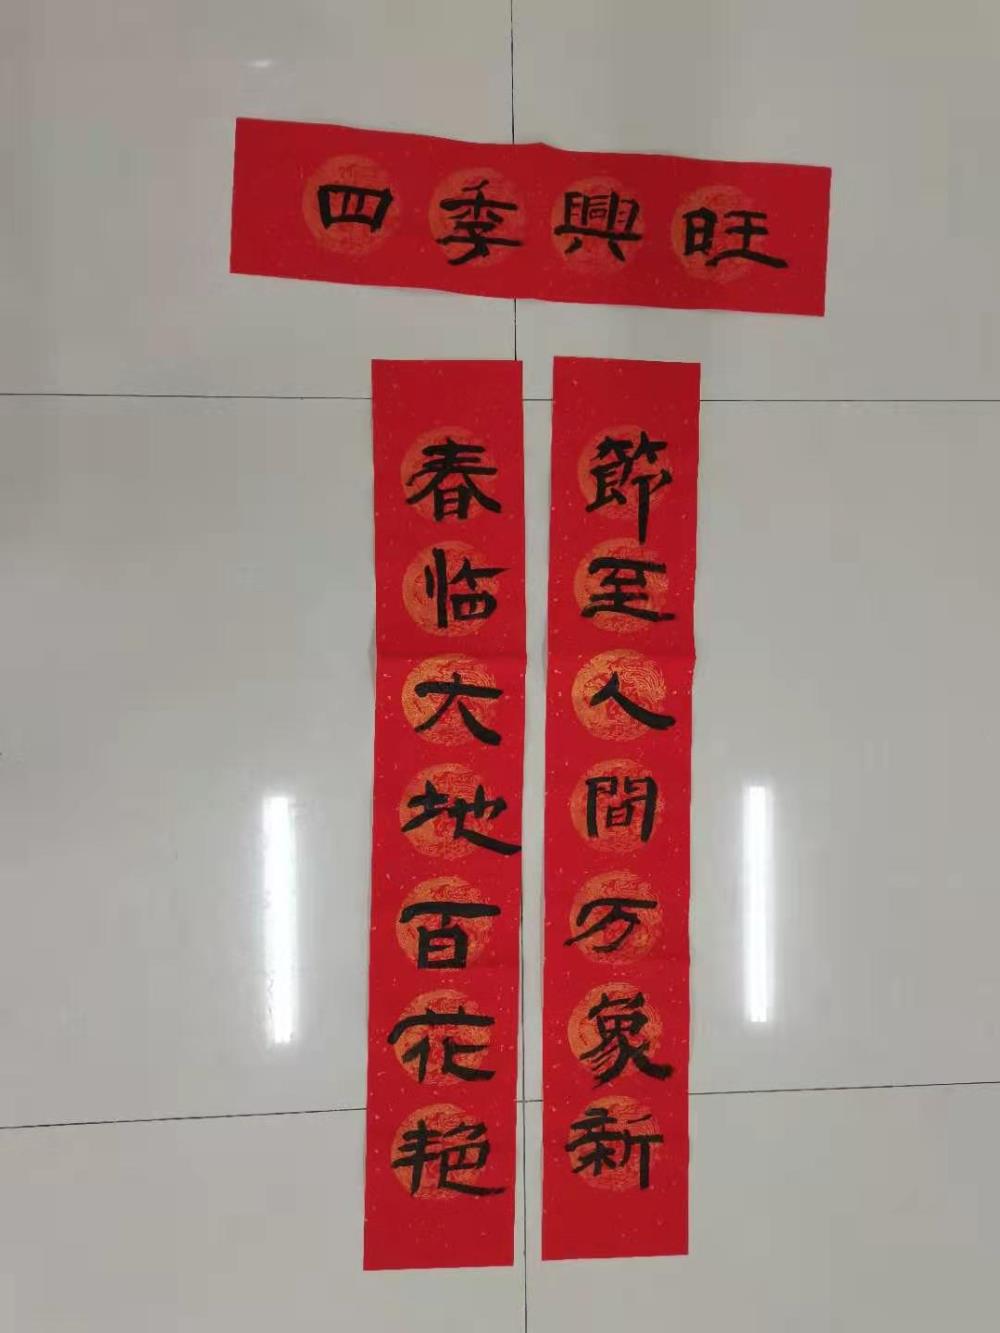 四季興旺
春临大地百花艳
節至人間万象新